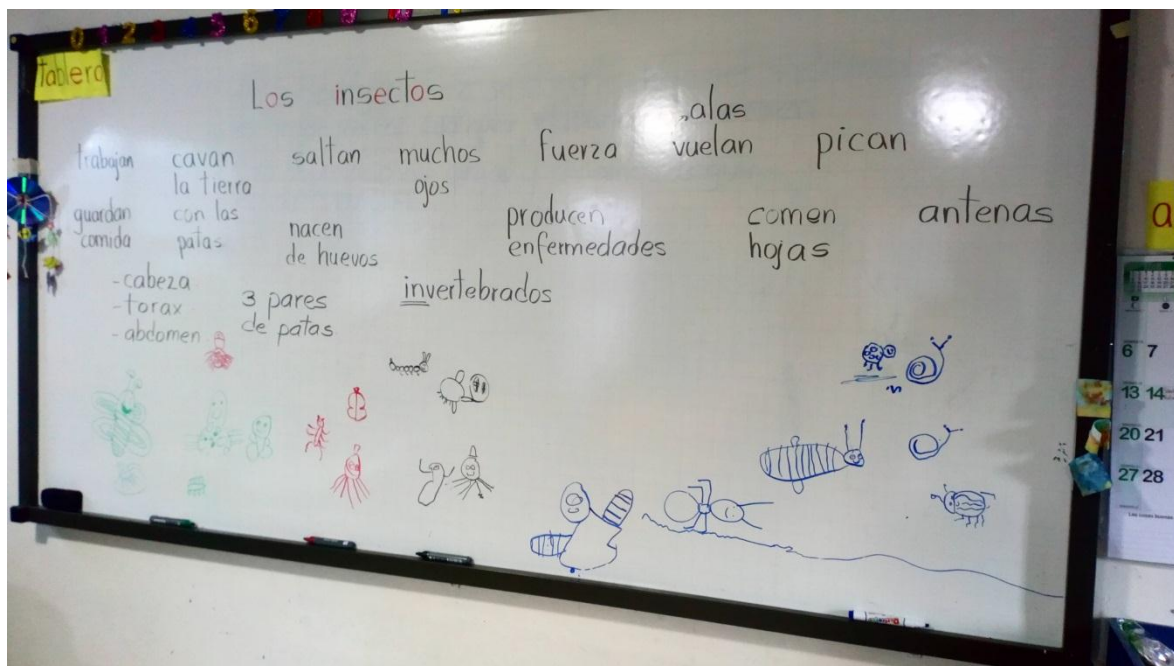 0 1 2 3 4 5 6 7 8 9
tablero
Los insectos
trabajan
cavan
la tierra
con las
patas
saltan
muchos
ojos
fuerza
alas
vuelan
pican
guardan
comida
nacen
de huevos
producen
enfermedades
comen
hojas
antenas
-cabeza
-torax
-abdomen
3 pares
de patas
invertebrados
a
6 7
13 14
20 21
27 28